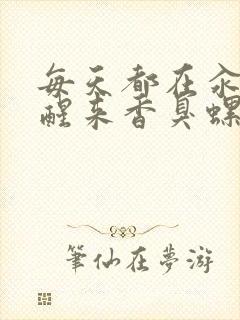 每天都在汆
醒来香臭螺
筆仙在夢游